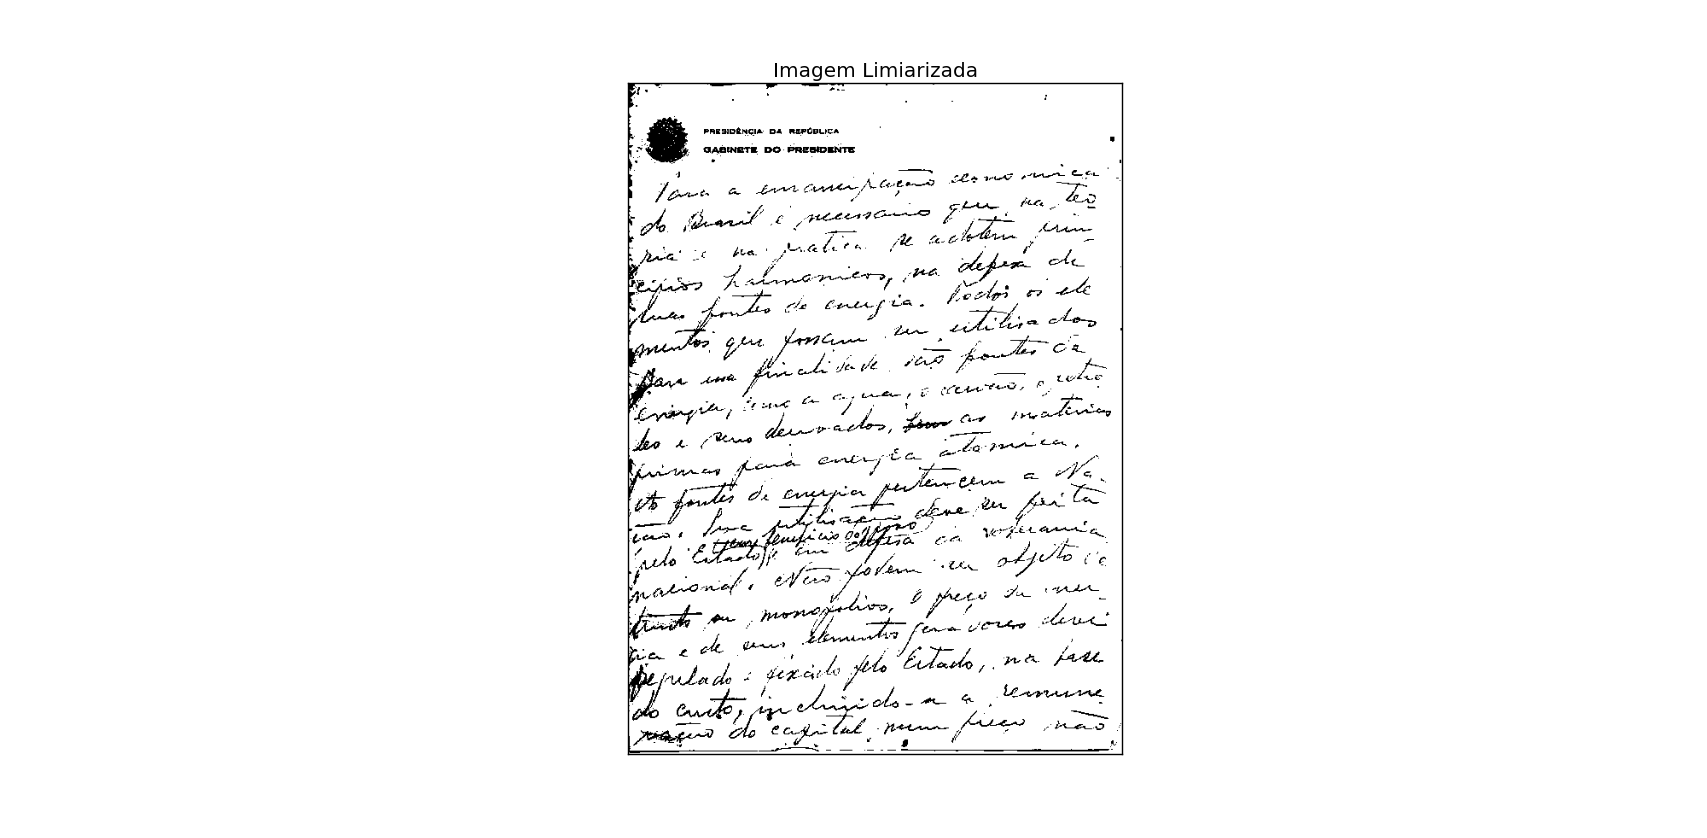 Imagem Limiarizada
PRESIDÊNCIA DA REPÚBLICA
GABINETE DO PRESIDENTE
Para a emancipação economica
do Brasil é necessario que na teo
ria e na pratica se adotem prin
cipios harmonicos, na defesa de
suas fontes de energia. Todos os ele
mentos que possam ser utilisados
para essa finalidade são fontes de
energia, como a agua, o carvão, o petro
leo e seus derivados, as materias
primas para energia atomica.
As fontes de energia pertencem a Na-
ção. Sua utilisação deve ser feita
em beneficio do
pelo Estado, em defesa da soberania
nacional. Não podem ser objeto de
trusts ou monopolios. O preço da ener-
gia e de seus elementos geradores deve
regulado e fixado pelo Estado, na base
do custo, incluindo-se a remune
ração do capital, num preço não